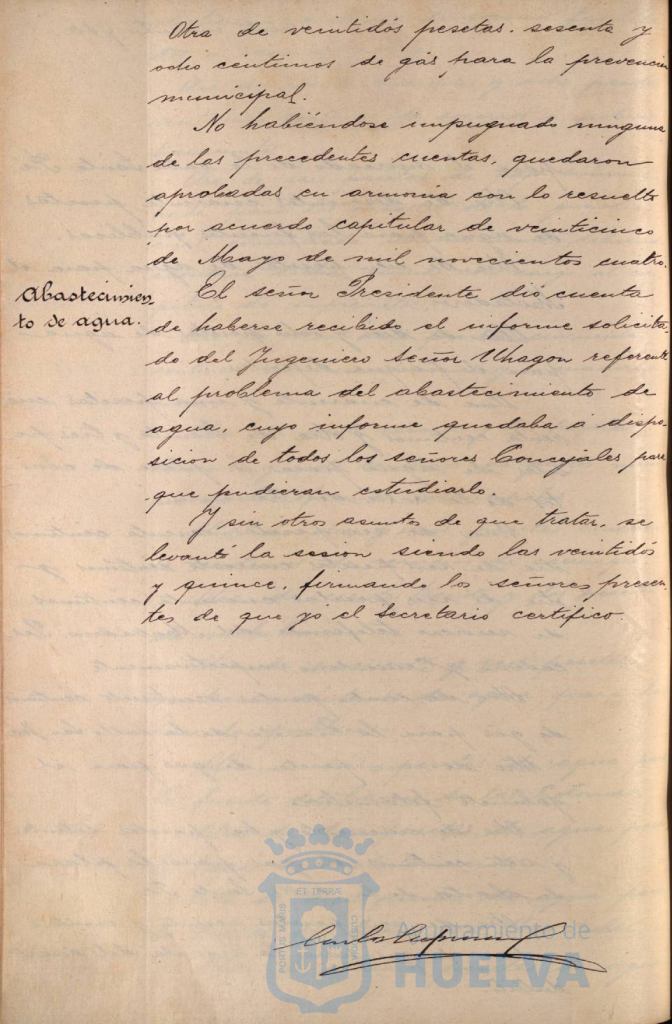 Otra de veintidós pesetas, sesenta y
ocho céntimos de gás para la prevención
municipal.
No habiéndose impugnado ninguna
de las precedentes cuentas, quedaron
aprobadas, en armonía con lo resuelto
por acuerdo capitular de veinticinco
de Mayo de mil novecientos cuatro.
Abastecimien-
to de agua.
El señor Presidente dió cuenta
de haberse recibido el informe solicita-
do del Ingeniero Señor Uhagon referente
al problema del abastecimiento de
agua, cuyo informe quedaba á dispo-
sicion de todos los señores Concejales para
que pudieran estudiarlo.
Y sin otros asuntos de que tratar, se
levantó la sesion siendo las veintidós
y quince, firmando los señores presen-
tes de que yó el Secretario certifico.
Carlos
ET TERRÆ
PORTUS MARIS
CUSTODIA
Ayuntamiento de
HUELVA